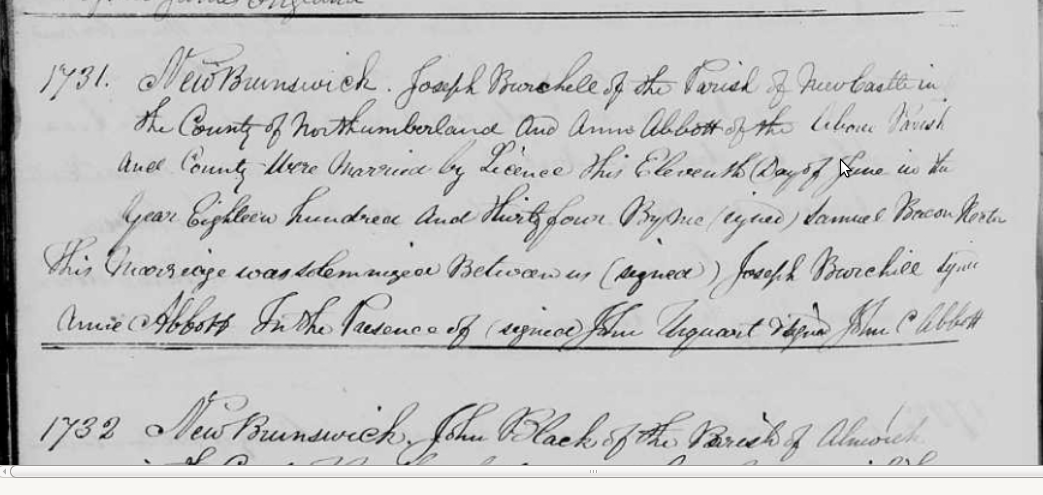 James England
1731. New Brunswick. Joseph Burchell of the Parish of Newcastle in
the County of Northumberland And Anne Abbott of the Above Parish
and County Were Married by Licence this Eleventh Day of June in the
Year Eighteen hundred And thirty four By Me (signed) Samuel Bacon Rector
This Marriage was solemnized Between us (signed) Joseph Burchill signed
Annie Abbott In the Presence of (signed) John Urquart signed John C Abbott
1732 New Brunswick. John Black of the Parish of Alnwick
in the